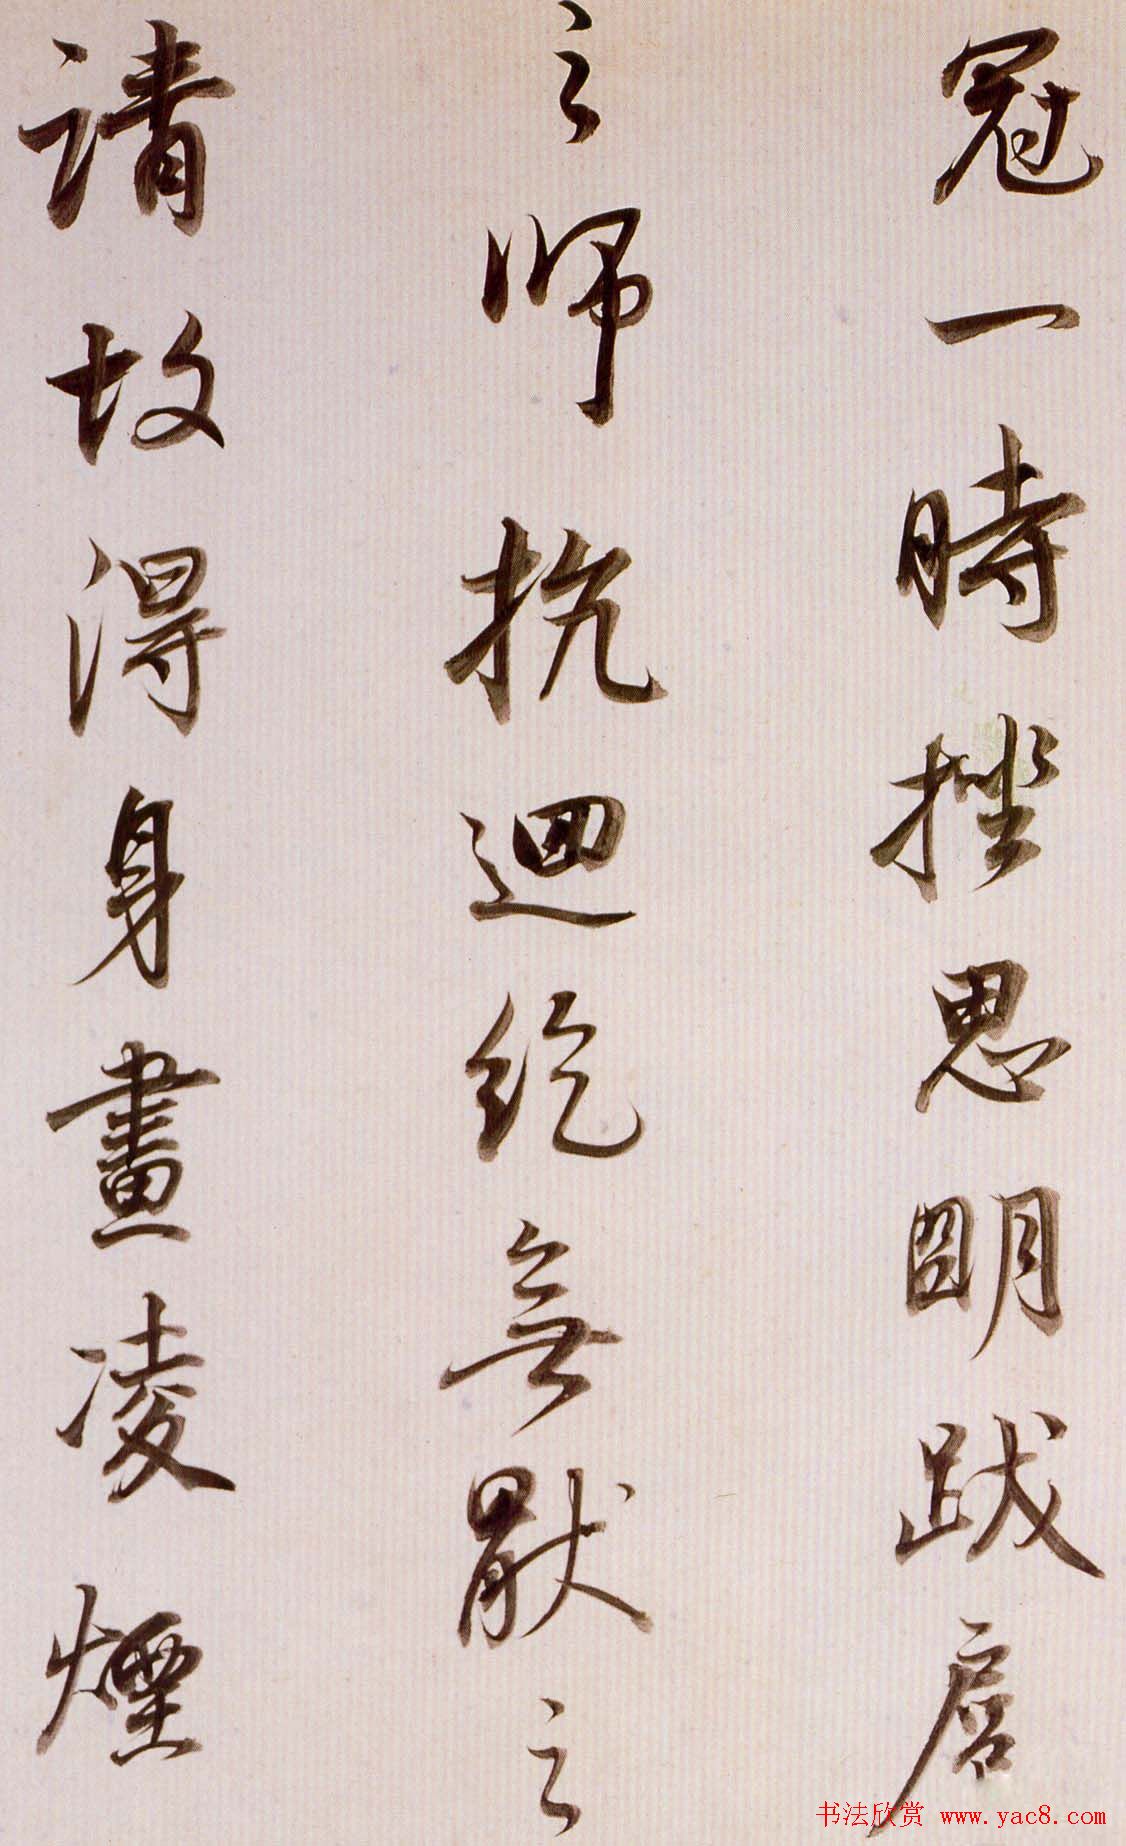 冠一時挫思明跋扈
之師抗迴紇無猒之
請故得身畫凌煙
书法欣赏 www.yac8.com